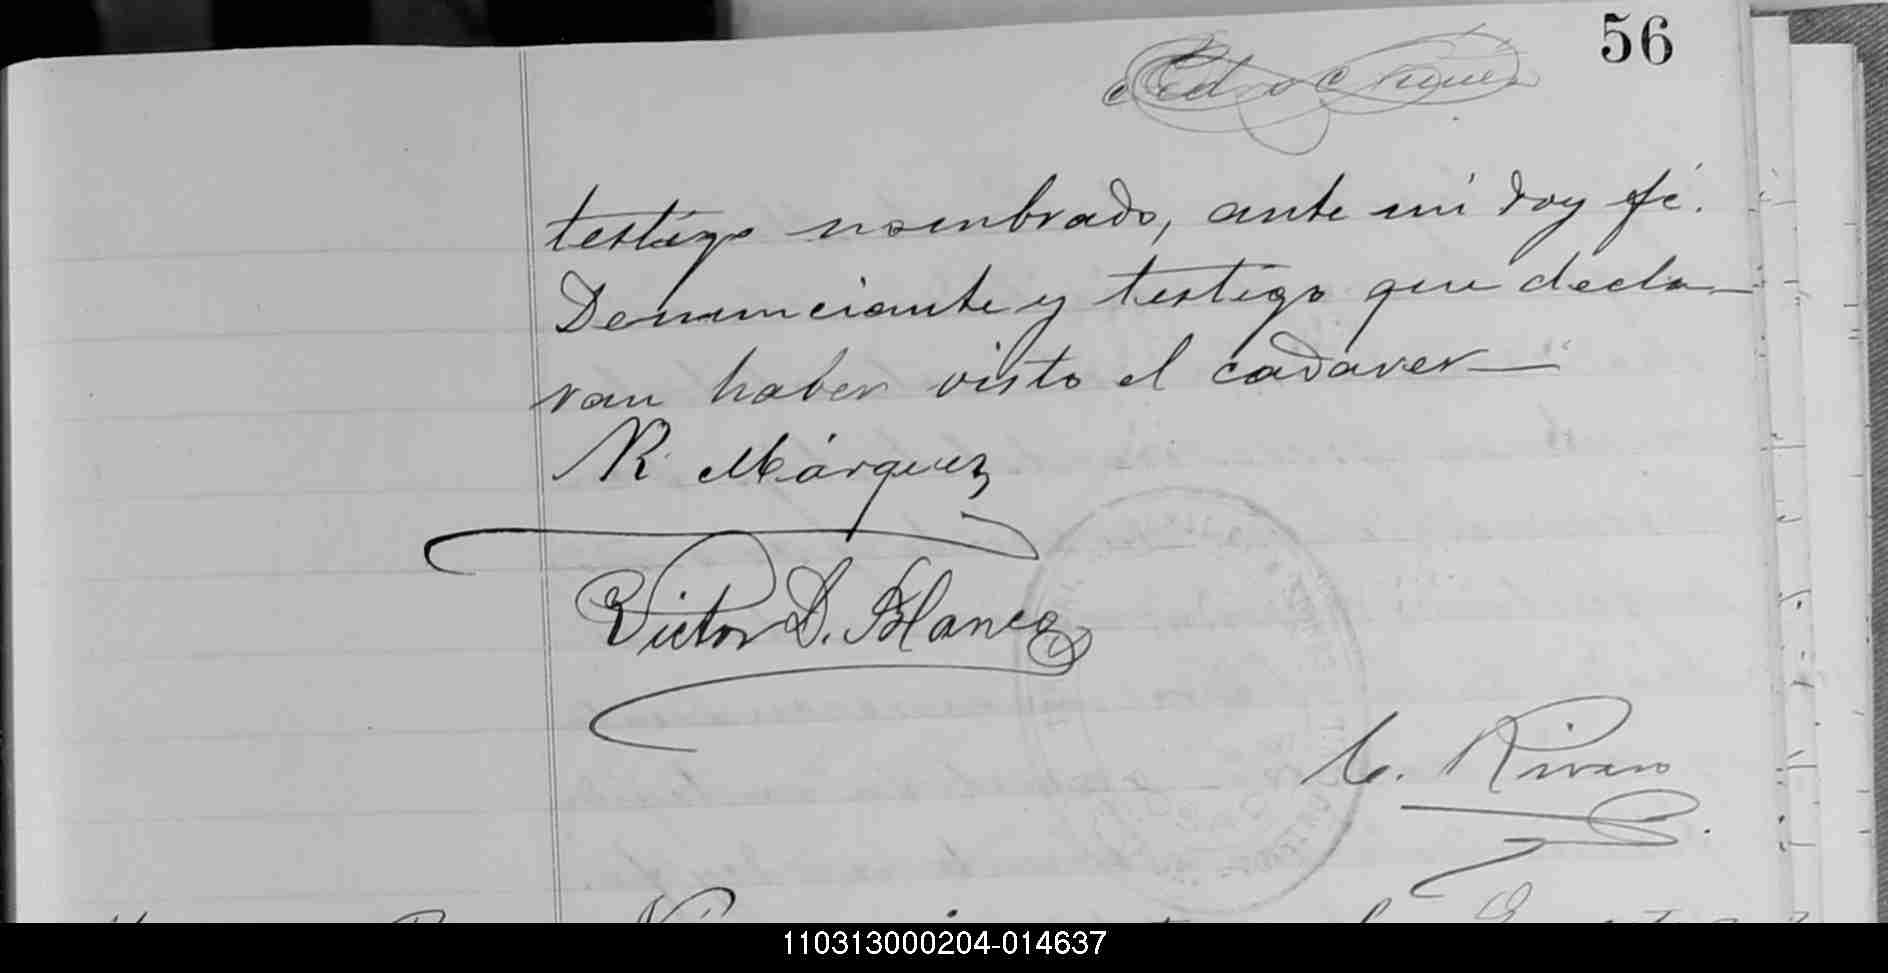 56
Pedro Nunez
testigo nombrado, ante mi doy fé.
Denunciante y testigo que decla-
ran haber visto el cadaver—
R. Márquez
Victor D. Blanco
C. Rivero
110313000204-014637